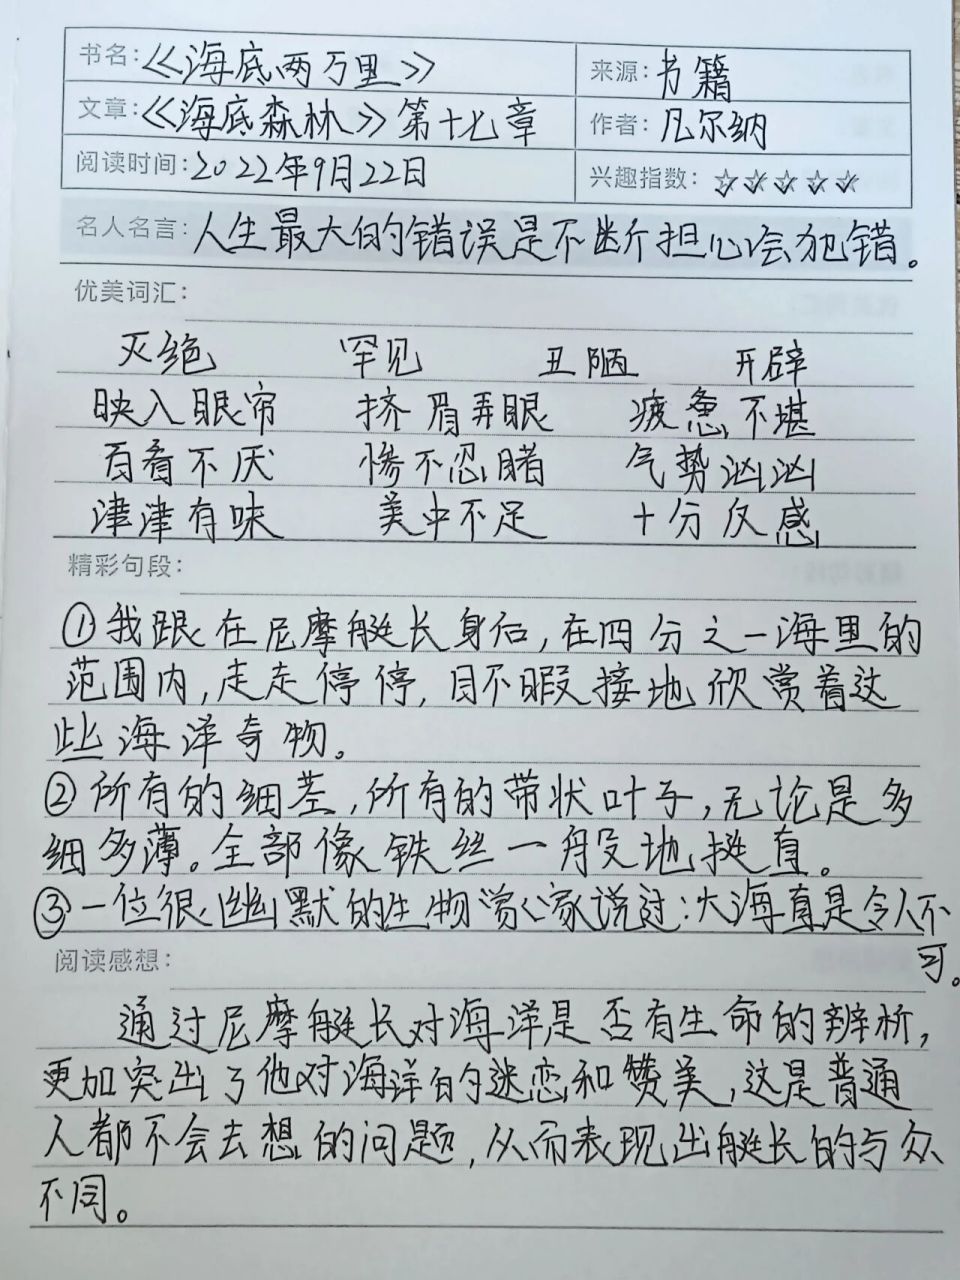 书名：《海底两万里》 来源：书籍
文章：《海底森林》第十七章 作者：凡尔纳
阅读时间：2022年9月22日 兴趣指数：☆☆☆☆☆
名人名言：人生最大的错误是不断担心会犯错。
优美词汇：
灭绝 罕见 丑陋 开辟
映入眼帘 挤眉弄眼 疲惫不堪
百看不厌 惨不忍睹 气势汹汹
津津有味 美中不足 十分反感
精彩句段：
①我跟在尼摩艇长身后，在四分之一海里的
范围内，走走停停，目不暇接地欣赏着这
些海洋奇物。
②所有的细茎，所有的带状叶子，无论是多
细多薄。全部像铁丝一般地挺直。
③一位很幽默的生物赏家说过：大海真是令人不
可。
阅读感想：
通过尼摩艇长对海洋是否有生命的辨析，
更加突出了他对海洋的迷恋和赞美，这是普通
人都不会去想的问题，从而表现出艇长的与众
不同。